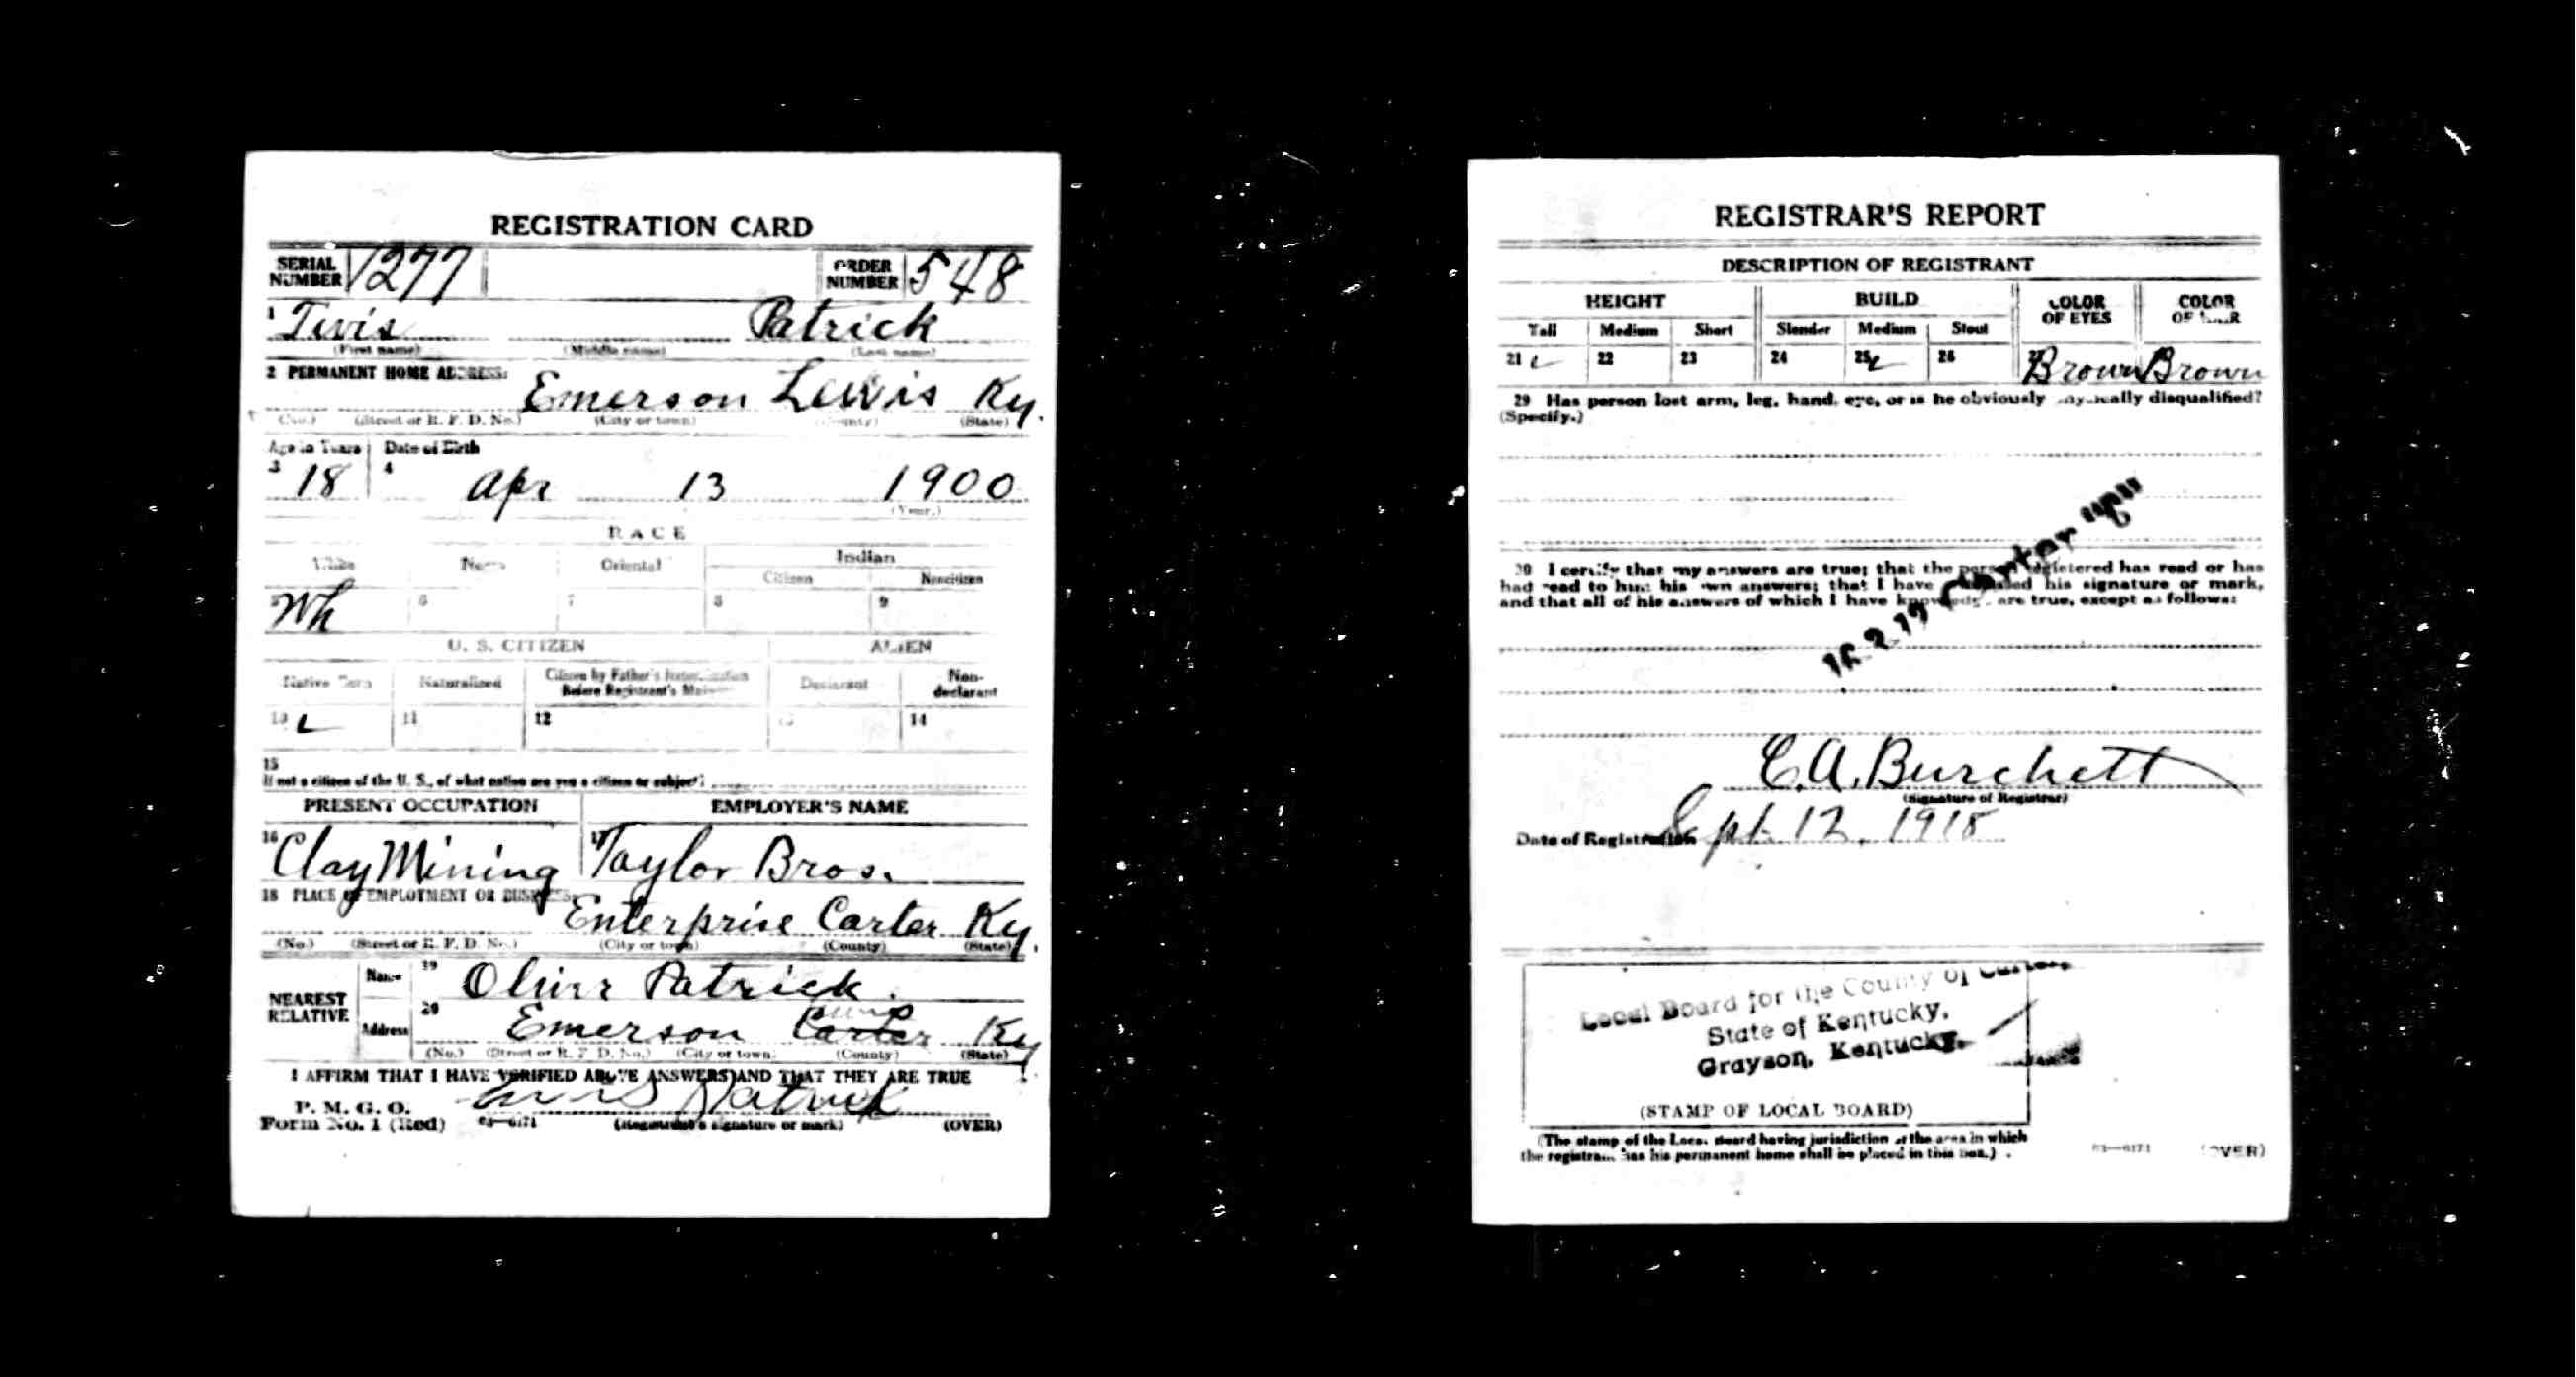 REGISTRATION CARD
SERIAL NUMBER 1277 ORDER NUMBER 548
1 Tivis Patrick
(First name) (Middle name) (Last name)
2 PERMANENT HOME ADDRESS:
Emerson Lewis Ky.
(No.) (Street or R. F. D. No.) (City or town) (County) (State)
Age in Years Date of Birth
3 18 4 Apr 13 1900
(Year.)
RACE
White Negro Oriental Indian
Citizen Noncitizen
5 Wh 6 7 8 9
U. S. CITIZEN ALIEN
Native Born Naturalized Citizen by Father's Naturalization Before Registrant's Majority Declarant Non-declarant
10 11 12 13 14
15
If not a citizen of the U. S., of what nation are you a citizen or subject?
PRESENT OCCUPATION EMPLOYER'S NAME
16 Clay Mining 17 Taylor Bros.
18 PLACE OF EMPLOYMENT OR BUSINESS:
Enterprise Carter Ky.
(No.) (Street or R. F. D. No.) (City or town) (County) (State)
NEAREST RELATIVE
Name 19 Oliver Patrick
Address 20 Emerson Lewis Carter Ky
(No.) (Street or R. F. D. No.) (City or town) (County) (State)
I AFFIRM THAT I HAVE VERIFIED ABOVE ANSWERS AND THAT THEY ARE TRUE
P. M. G. O.
Form No. 1 (Red) 03—6171
Tivis Patrick
(Registrant's signature or mark) (OVER)
REGISTRAR'S REPORT
DESCRIPTION OF REGISTRANT
HEIGHT BUILD COLOR OF EYES COLOR OF HAIR
Tall Medium Short Slender Medium Stout
21 22 23 24 25 26 27 Brown Brown
29 Has person lost arm, leg, hand, eye, or is he obviously physically disqualified?
(Specify.)
30 I certify that my answers are true; that the person registered has read or has
had read to him his own answers; that I have witnessed his signature or mark,
and that all of his answers of which I have knowledge are true, except as follows:
16-2-19 Carter
C. A. Burchett
(Signature of Registrar)
Date of Registration Sept. 12, 1918
Local Board for the County of Carter,
State of Kentucky,
Grayson, Kentucky.
(STAMP OF LOCAL BOARD)
(The stamp of the Local Board having jurisdiction of the area in which
the registrant has his permanent home shall be placed in this box.)
03—6171 (OVER)